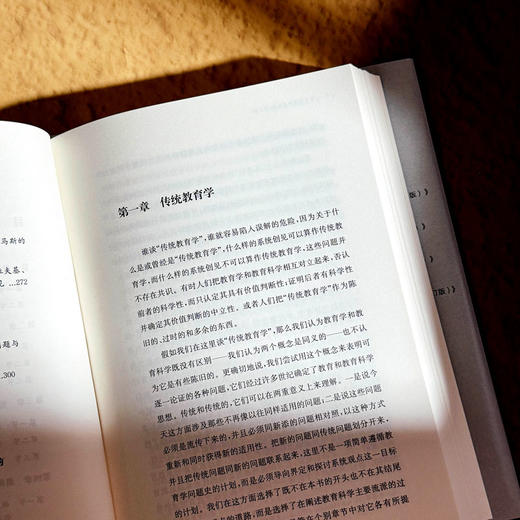 马斯的
夫基、
见 …272
题与
.300
的
第一章 传统教育学
谁谈“传统教育学”,谁就容易陷入误解的危险,因为关于什
么是或曾经是“传统教育学”,什么样的系统创见可以算作传统教
育学,而什么样的系统创见不可以算作传统教育学,这些问题并
不存在共识。有时人们把教育学和教育科学相互对立起来,否认
前者的科学性,而只认定其具有价值判断性;证明后者有科学性
并确定其价值判断的中立性。或者人们把“传统教育学”作为陈
旧的、过时的和多余的东西。
假如我们在这里谈“传统教育学”,那么我们认为教育学和教
育科学既没有区别——我们认为两个概念是同义的——也不认
为它是有些陈旧的。更确切地说,我们尝试用这个概念来表明可
逐一论证的各种问题,它们经过许多世纪确定了教育和教育科学
思想。传统和传统的,它们可以在两重意义上来理解。一是说今
天这方面涉及那些不再像以往同样适用的问题;二是说这些问题
必须是流传下来的,并且必须同新添的问题相对照,以这种方式
重新和同时获得新的适用性。把新的问题同传统问题划分开来,
并且把传统问题同新的问题联系起来,这里不是一项简单遵循教
育学问题史的计划,而是必须导向界定和探讨系统观点这一目标
的计划。我们在这方面选择了既不在本书的开头也不在其结尾
的道路,而是选择了在阐述教育科学主要流派的过
在个别章节中对它各有所提
版)》
》
)》
订版)》